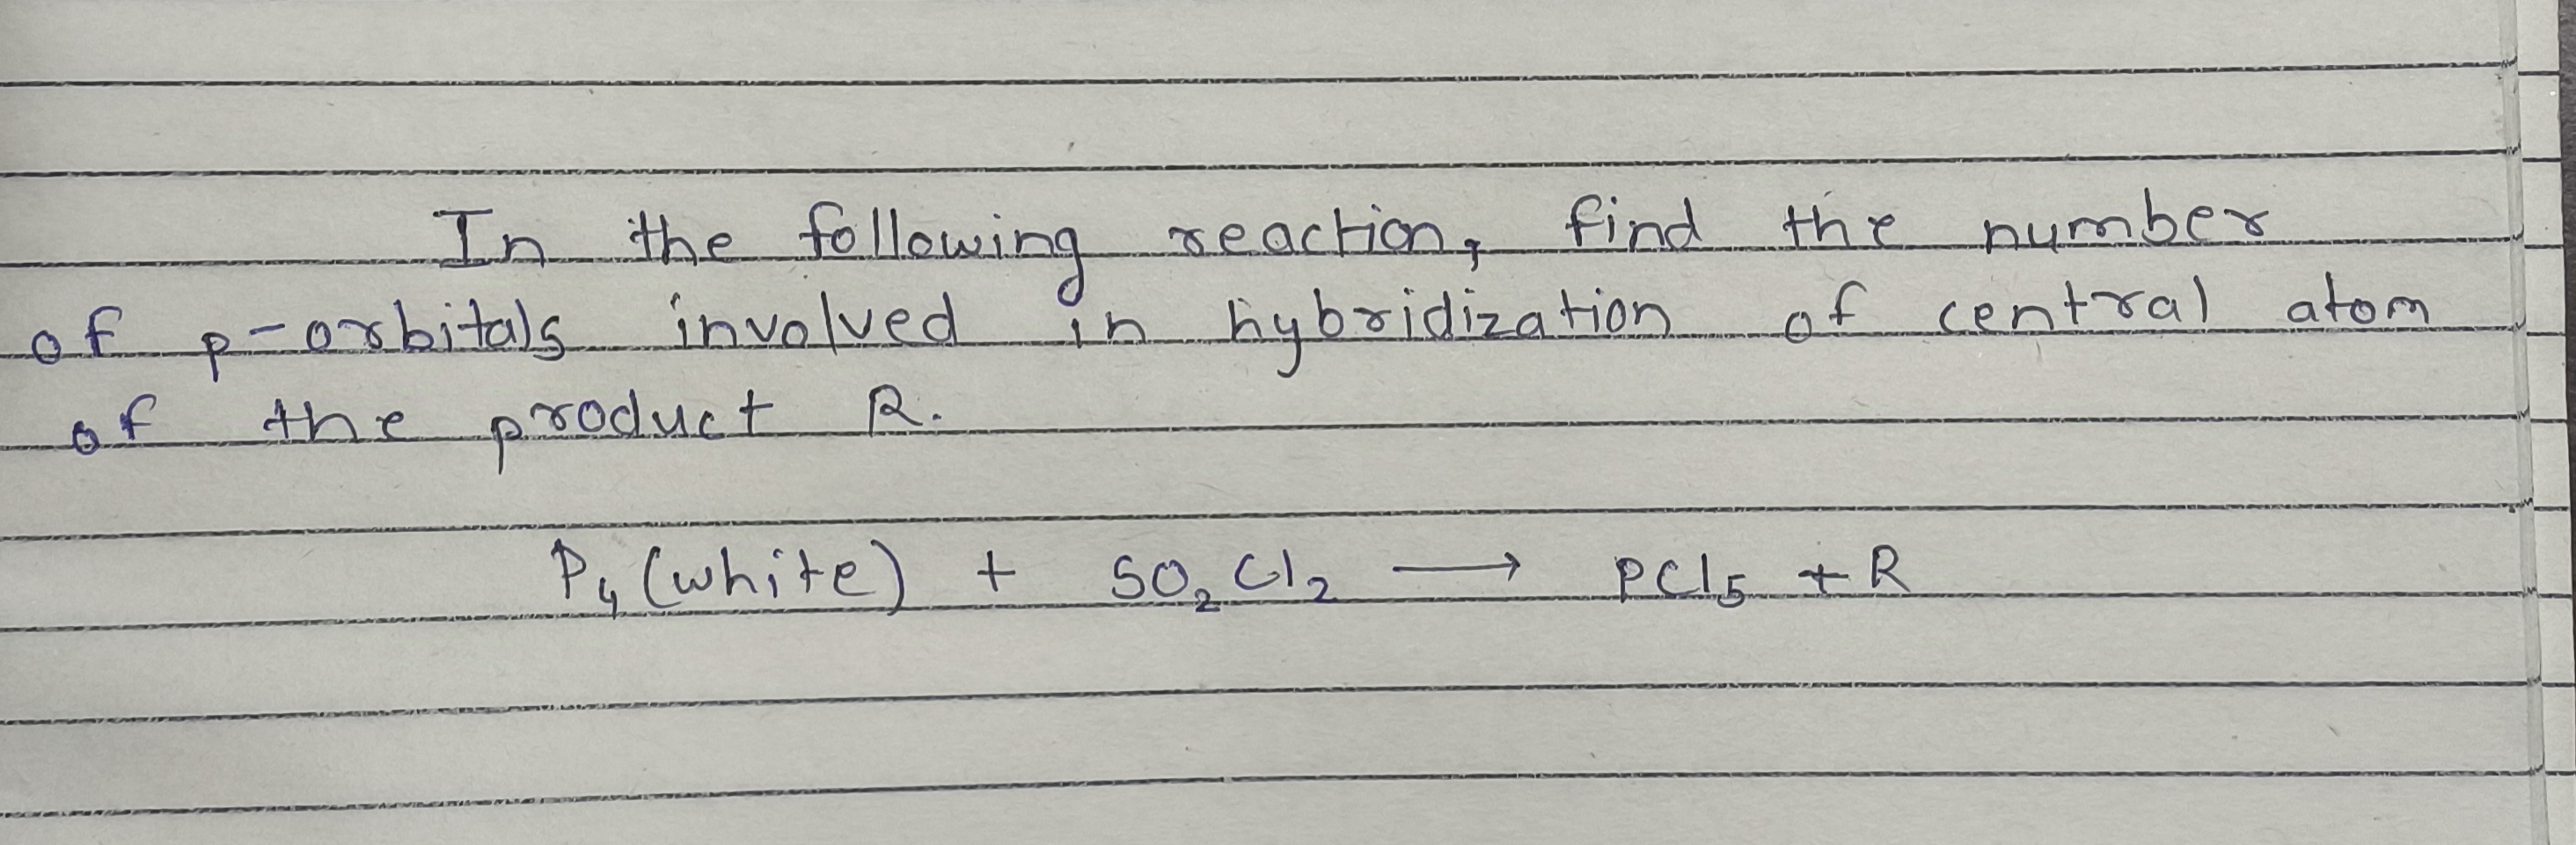 In the following reaction, find the number
of p-orbitals involved in hybridization of central atom
of the product R.
P₄ (white) + SO₂Cl₂ ⟶ PCl₅ + R